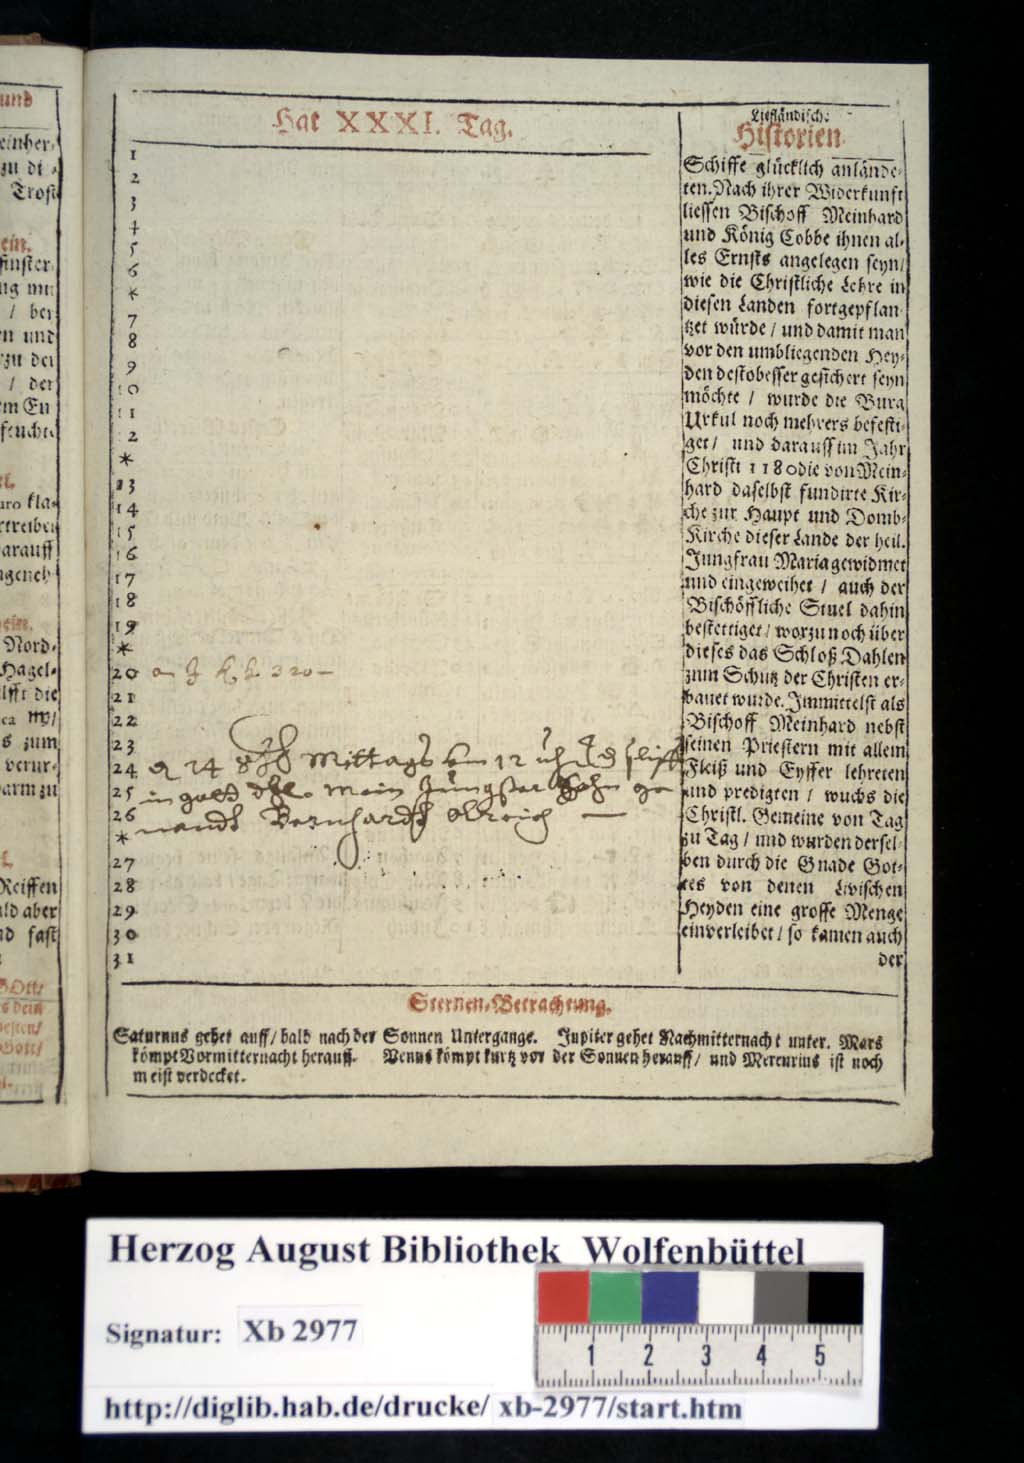 und
Trost
ein.
/ ber
n und
/ der
Nord-
Hagel-
s zum
verur-
Reiffen
ld aber
nd fast
Hat XXXI. Tag.
1
2
3
4
5
6
*
7
8
9
10
11
12
*
13
14
15
16
17
18
19
*
20
21
22
23
24 24 Mittags 12
25 in gott mein Jüngster Sohn
26 Bernhardt
*
27
28
29
30
31
Liefländisch:
Historien.
Schiffe glücklich anlände-
ten. Nach ihrer Widerkunft
liessen Bischoff Meinhard
und König Cobbe ihnen al-
les Ernsts angelegen seyn/
wie die Christliche Lehre in
diesen Landen fortgepflan-
tzet würde / und damit man
vor den umbliegenden Hey-
den destobesser gesichert seyn
möchte / wurde die Burg
Urkul noch mehrers befesti-
get / und darauff im Jahr
Christi 1180 die von Mein-
hard daselbst fundirte Kir-
che zur Haupt und Domb-
Kirche dieser Lande der heil.
Jungfrau Maria gewidmet
und eingeweihet / auch der
Bischöffliche Stuel dahin
bestettiget / worzu noch über
dieses das Schloß Dahlen
zum Schutz der Christen er-
bauet wurde. Immittelst als
Bischoff Meinhard nebst
seinen Priestern mit allem
Fleiß und Eyffer lehreten
und predigten / wuchs die
Christl. Gemeine von Tag
zu Tag / und wurden dersel-
ben durch die Gnade Got-
tes von denen Livischen
Heyden eine grosse Menge
einverleibet / so kamen auch
der
Sternen-Betrachtung.
Saturnus gehet auff / bald nach der Sonnen Untergange. Jupiter gehet Nachmitternacht unter. Mars
kömpt Vormitternacht herauff. Venus kömpt kurtz vor der Sonnen herauff / und Mercurius ist noch
meist verdecket.
Herzog August Bibliothek Wolfenbüttel
Signatur: Xb 2977
1 2 3 4 5
http://diglib.hab.de/drucke/ xb-2977/start.htm